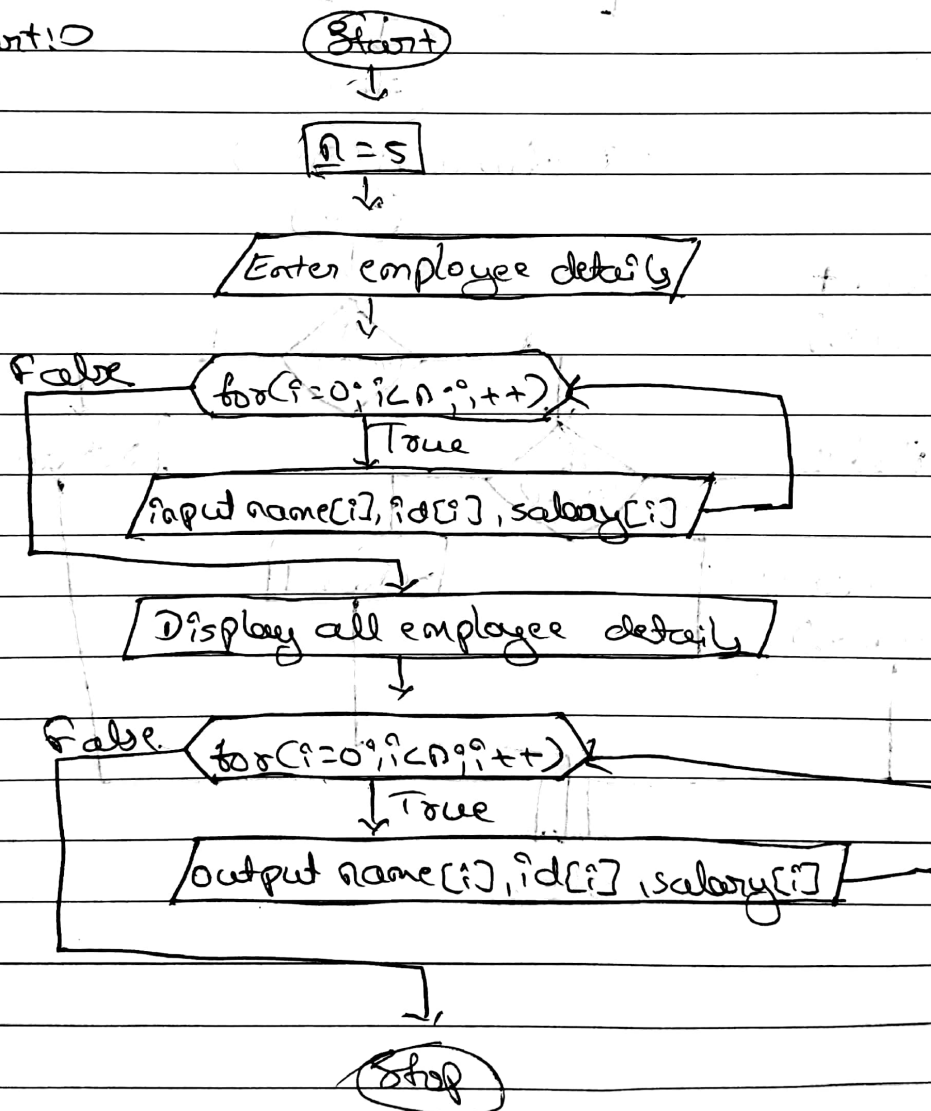 Start
n = 5
Enter employee details
False
for(i=0; i<n; i++)
True
input name[i], id[i], salary[i]
Display all employee details
False
for(i=0; i<n; i++)
True
output name[i], id[i], salary[i]
Stop